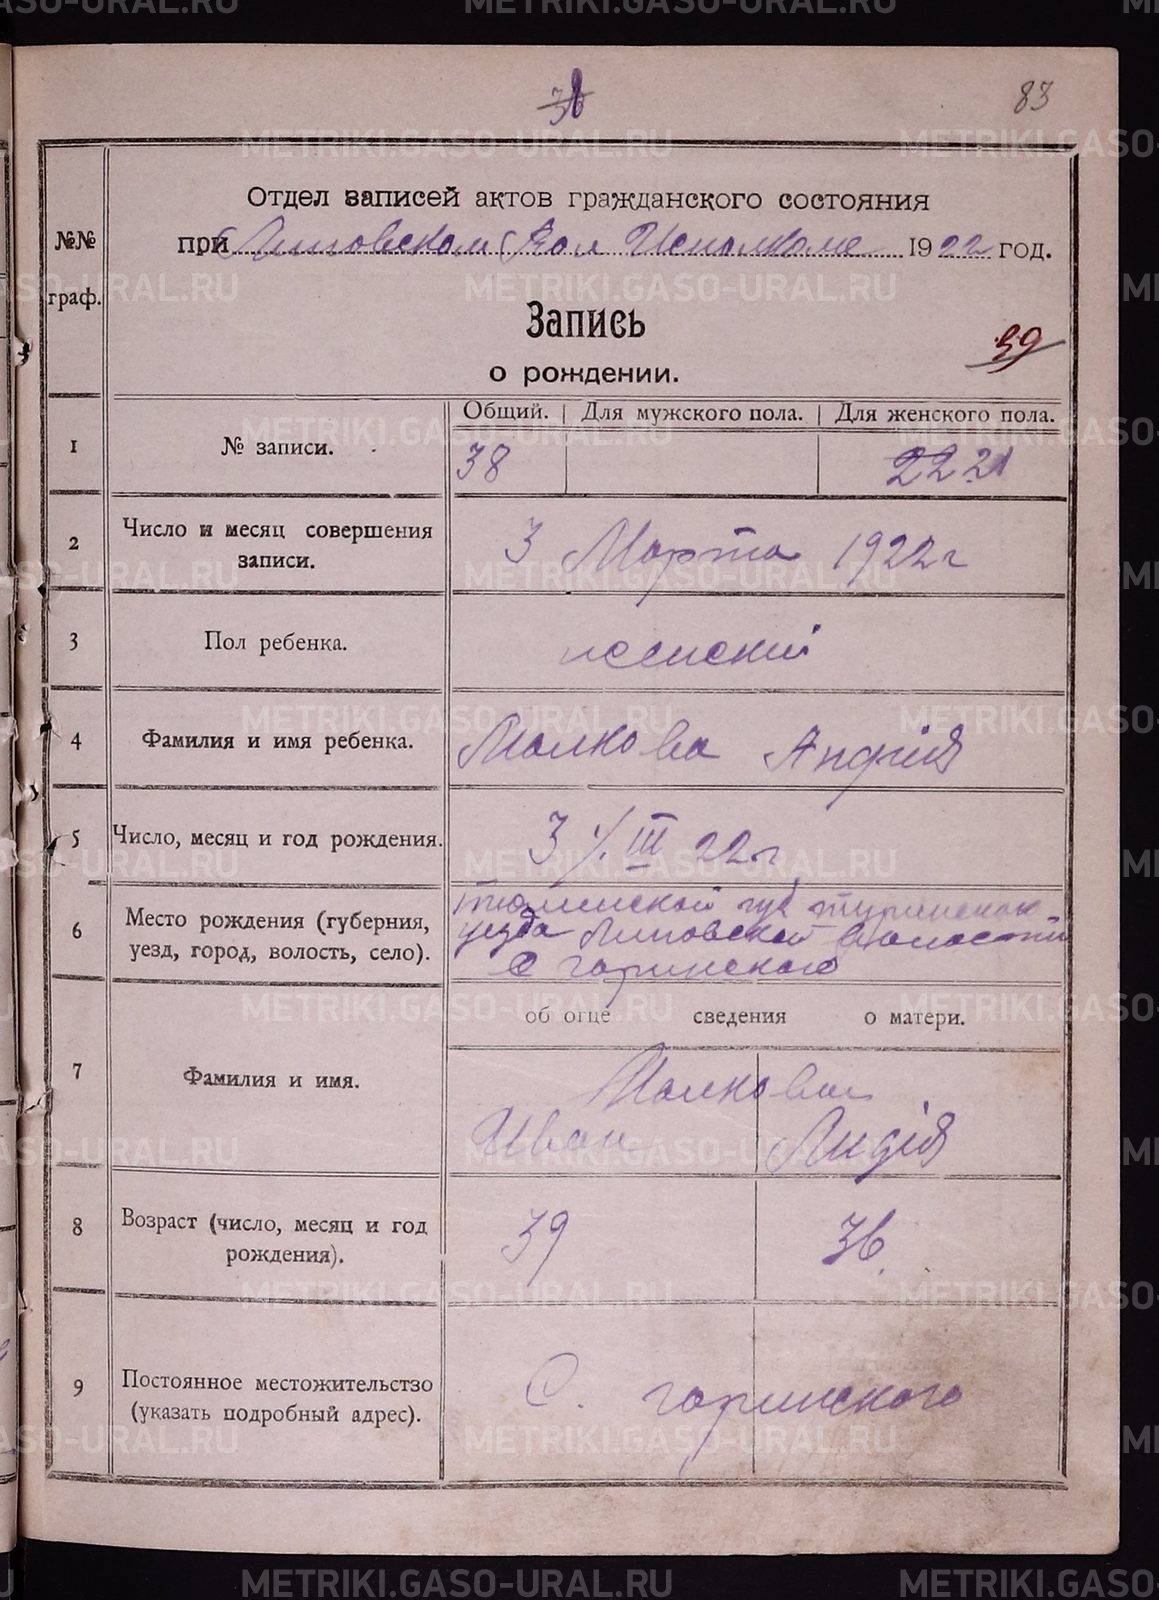 38
83
Отдел записей актов гражданского состояния
при Липовском Вол Исполкоме 1922 год.
№№
граф.
Запись
о рождении.
39
Общий. Для мужского пола. Для женского пола.
1 № записи. 38 22 21
2 Число и месяц совершения
записи.
3 Марта 1922 г
3 Пол ребенка. женский
4 Фамилия и имя ребенка. Малкова
5 Число, месяц и год рождения. 3/III 22 г
6 Место рождения (губерния,
уезд, город, волость, село).
тюменской губ туринского
уезда Липовской волости
С гаринского
об отце сведения о матери.
7 Фамилия и имя.
Малковы
Иван Лидія
8 Возраст (число, месяц и год
рождения).
39 36
9 Постоянное местожительство
(указать подробный адрес).
С. гаринского
METRIKI.GASO-URAL.RU